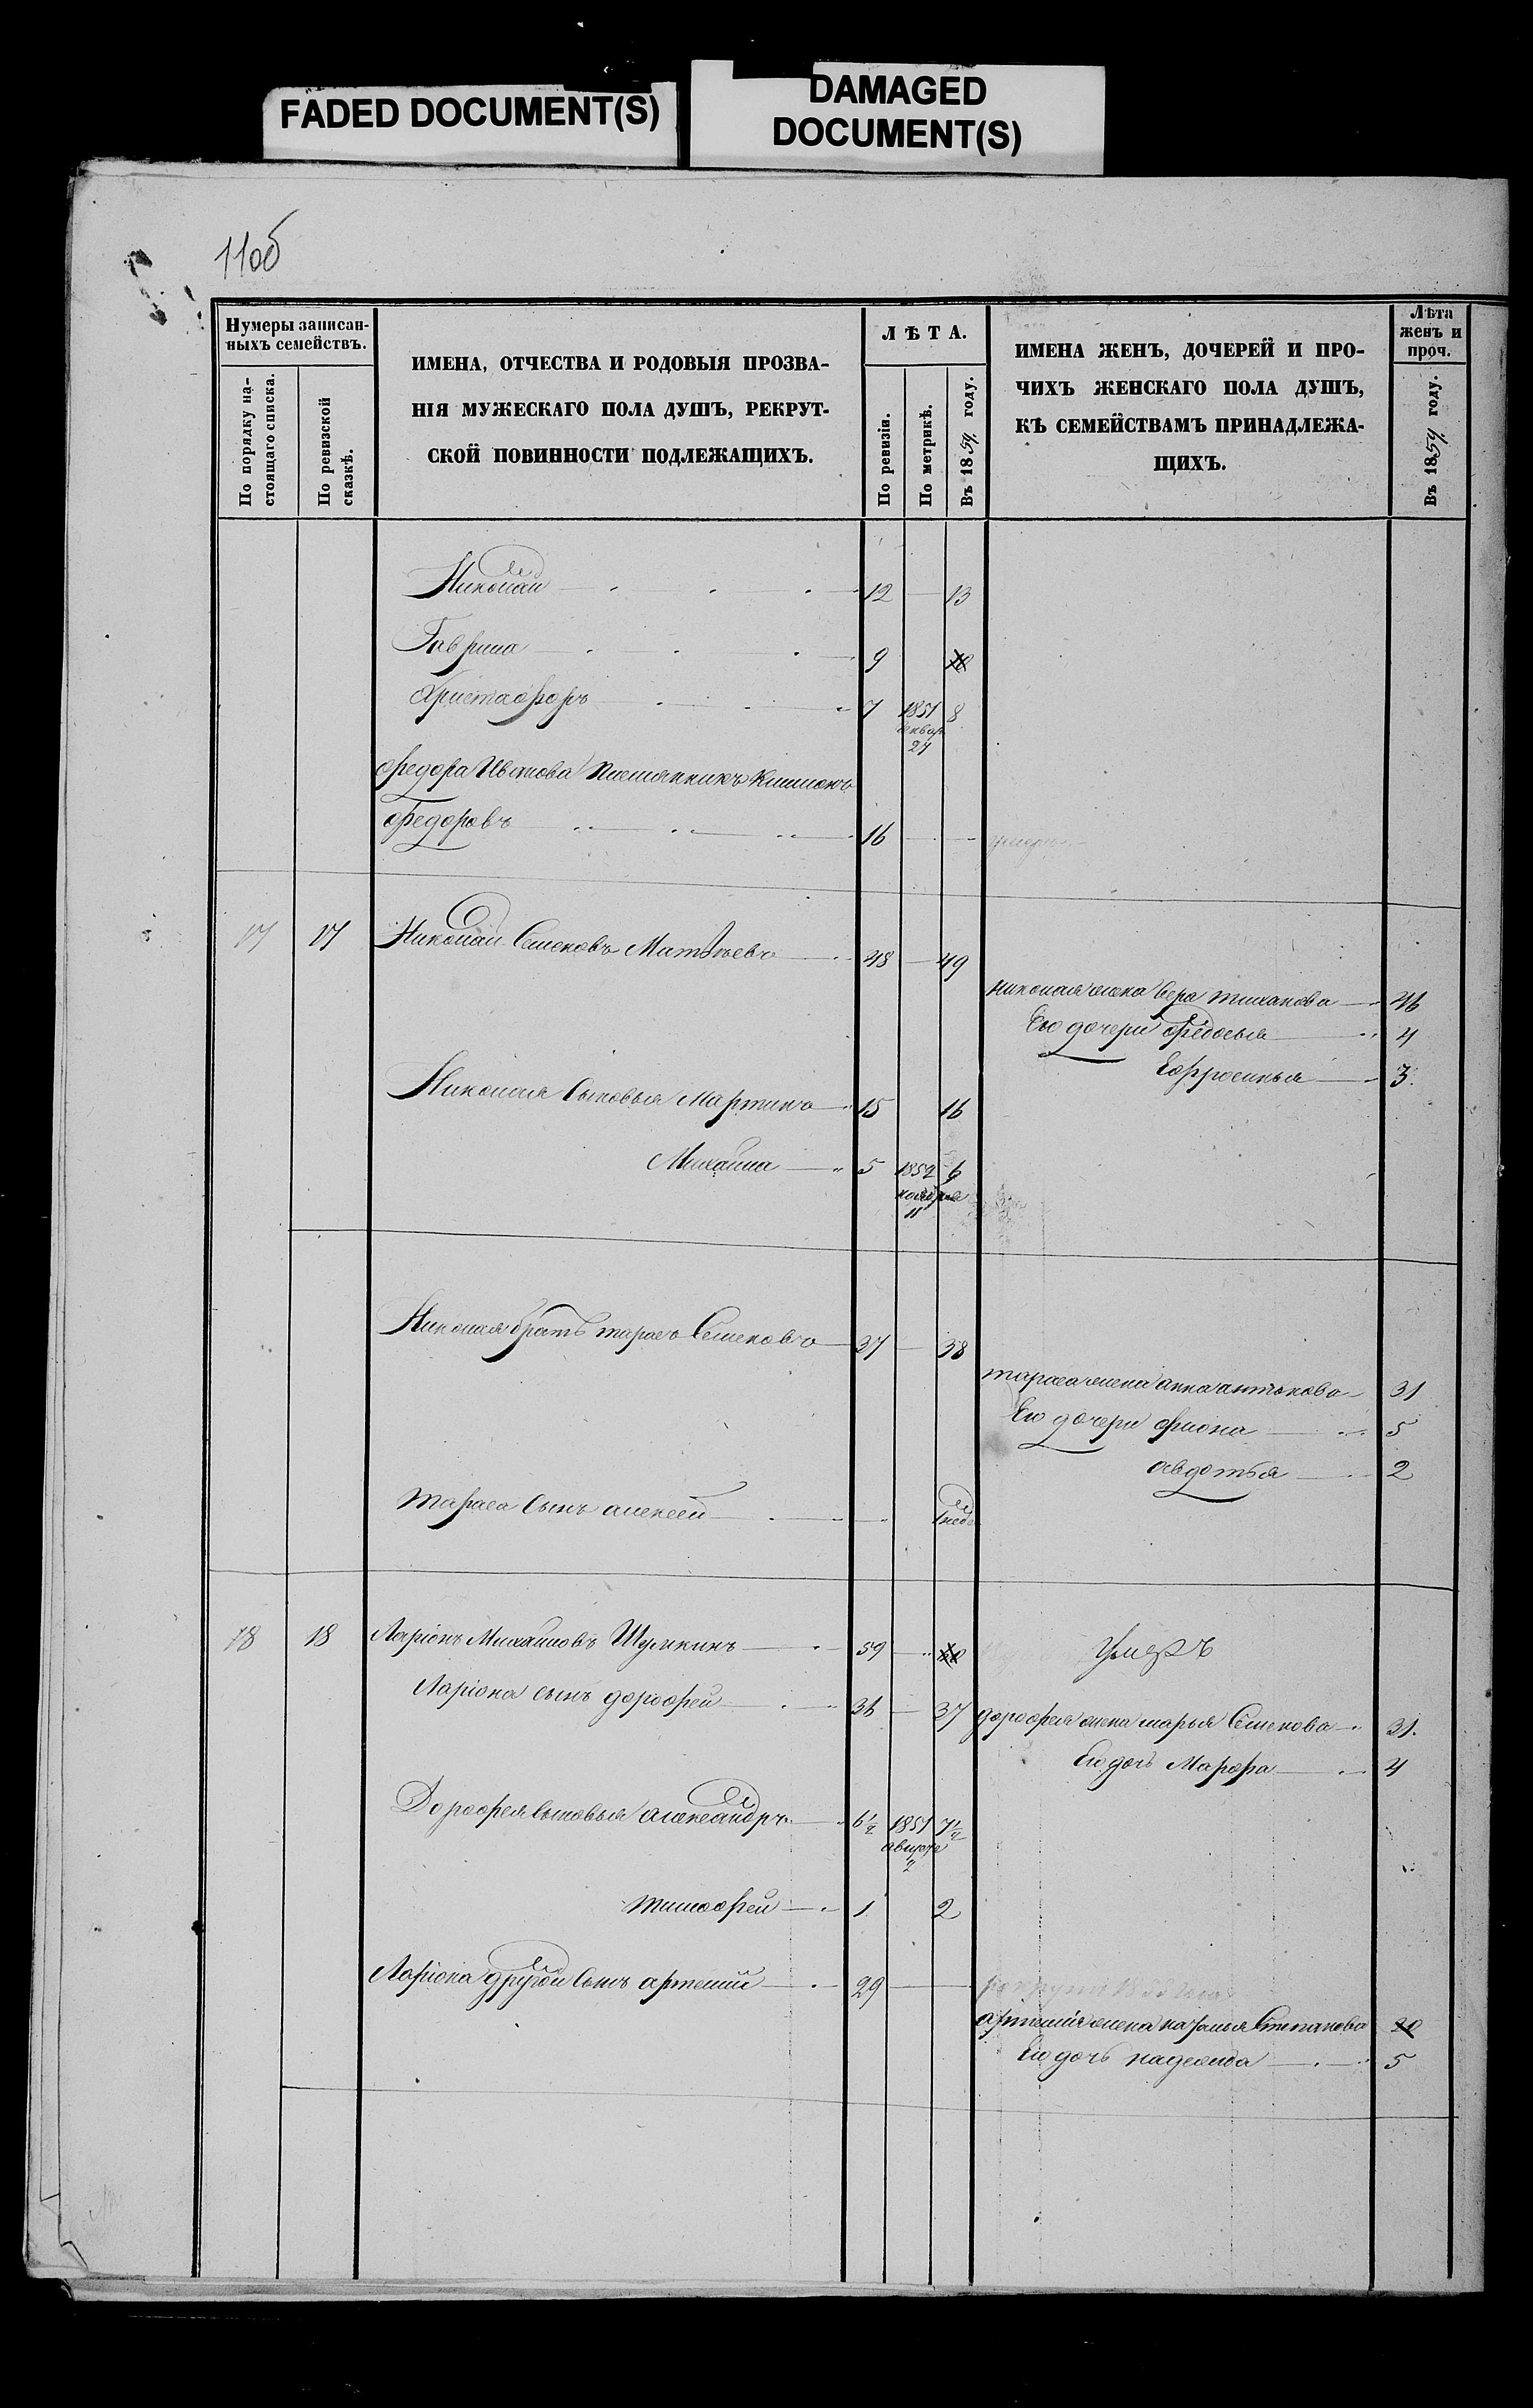 FADED DOCUMENT(S)
DAMAGED
DOCUMENT(S)
11об
Нумеры записан-
ныхъ семействъ.
По порядку на-
стоящаго списка.
По ревизской
сказкѣ.
ИМЕНА, ОТЧЕСТВА И РОДОВЫЯ ПРОЗВА-
НІЯ МУЖЕСКАГО ПОЛА ДУШЪ, РЕКРУТ-
СКОЙ ПОВИННОСТИ ПОДЛЕЖАЩИХЪ.
ЛѢТА.
По ревизіи.
По метрикѣ.
Въ 1859 году.
ИМЕНА ЖЕНЪ, ДОЧЕРЕЙ И ПРО-
ЧИХЪ ЖЕНСКАГО ПОЛА ДУШЪ,
КЪ СЕМЕЙСТВАМЪ ПРИНАДЛЕЖА-
ЩИХЪ.
Лѣта
женъ и
проч.
Въ 1859 году.
Николай 12 13
Гаврила 9
Христафоръ 7 1851 8
24
Федора Иванова племянникъ
Федоровъ 16
17 17 Николай Семеновъ Матвѣевъ 48 49
Николая жена Вера тиханова 46
Его дочери Федосья 4
Ефросинья 3.
Николая сыновья Мартинъ 15 16
Михайла 5 1852 6
ноября
11
Николая братъ тарасъ Семеновъ 37 38
тараса жена анна антонова 31
Его дочери фиона 5
авдотья 2
тараса сынъ алексей
18 18 Ларіонъ Михайловъ Шумкинъ 59 умеръ
Ларіона сынъ дорофей 36 37 дорофея жена марья Семенова 31.
Его дочь Марфа 4
Дорофея сыновья александръ 6½ 1851 7½
августа
2
тимофей 1 2
Ларіона другой сынъ артемий 29
артемия жена наталья Степанова
Его дочь надежда 5